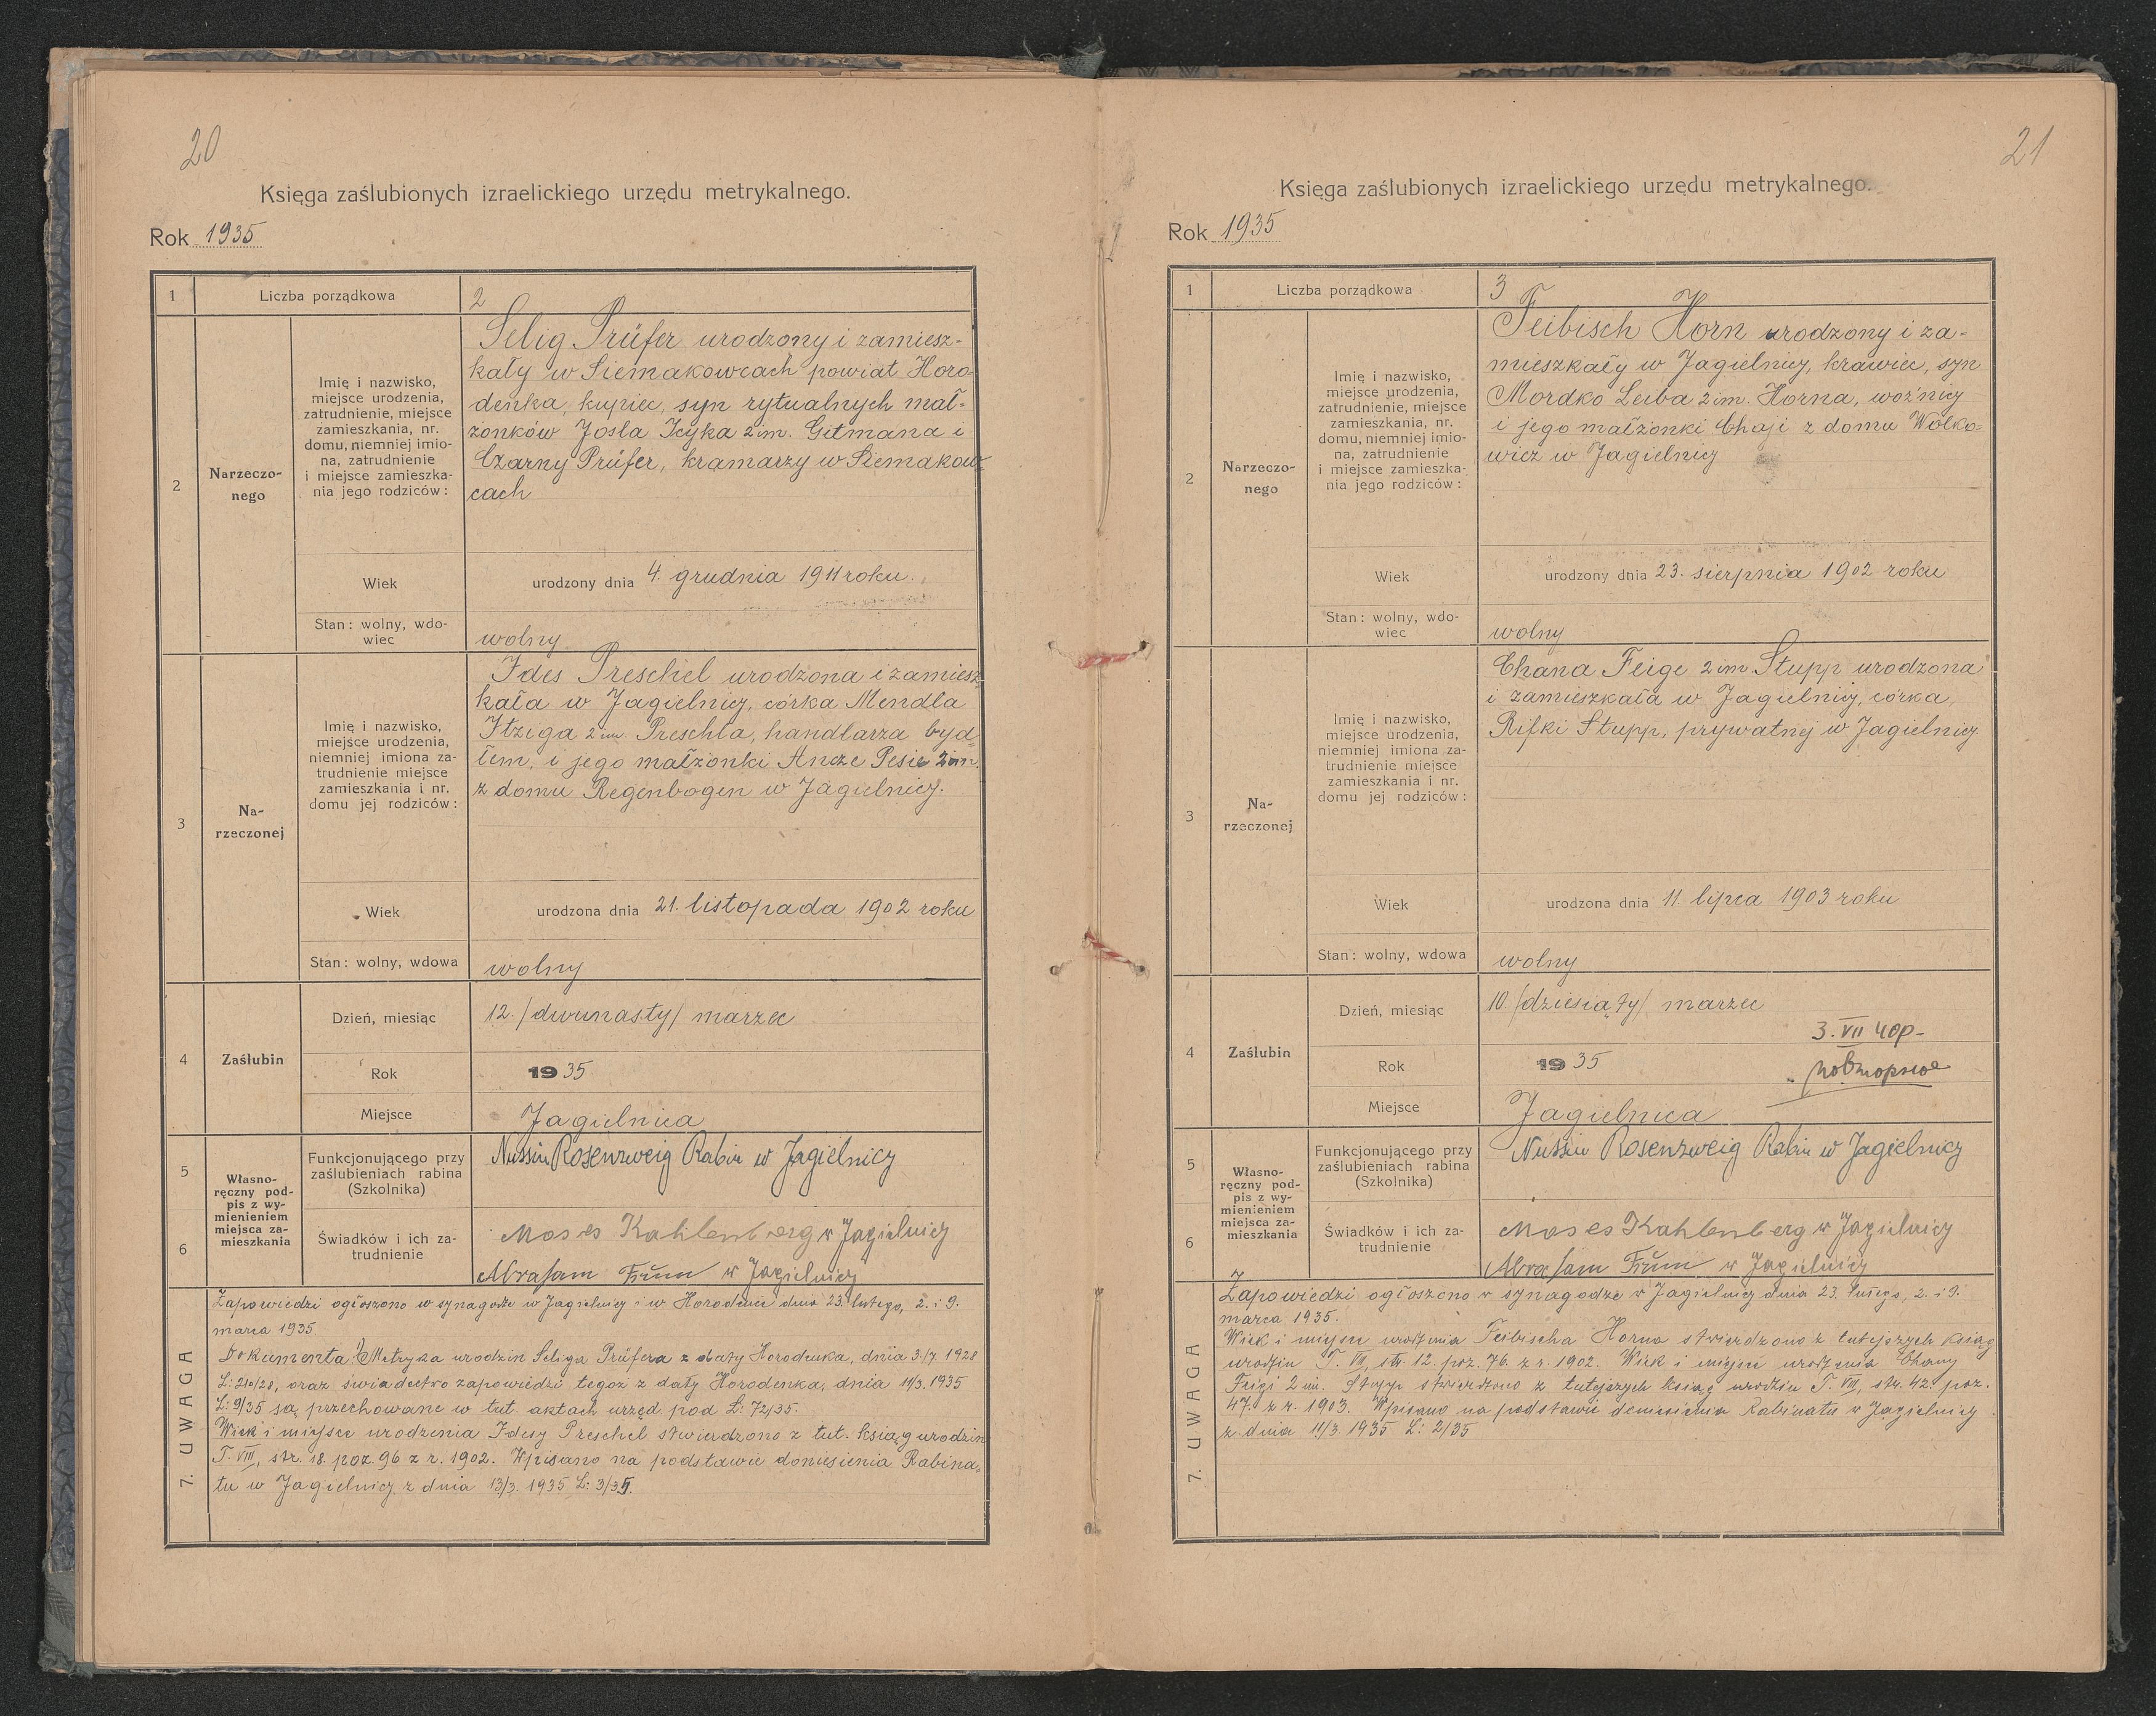 20
Księga zaślubionych izraelickiego urzędu metrykalnego.
Rok 1935
1
Liczba porządkowa
2
2
Narzeczo-
nego
Imię i nazwisko,
miejsce urodzenia,
zatrudnienie, miejsce
zamieszkania, nr.
domu, niemniej imio-
na, zatrudnienie
i miejsce zamieszka-
nia jego rodziców:
Selig Prüfer urodzony i zamiesz-
kały w Siemakowcach powiat Horo-
denka, kupiec, syn rytualnych mał-
żonków Josla Icyka 2 im. Gitmana i
Czarny Prüfer, kramarzy w Siemakow-
cach
Wiek
urodzony dnia 4. grudnia 1911 roku.
Stan: wolny, wdo-
wiec
wolny
3
Na-
rzeczonej
Imię i nazwisko,
miejsce urodzenia,
niemniej imiona za-
trudnienie miejsce
zamieszkania i nr.
domu jej rodziców:
Ides Preschel urodzona i zamiesz
kała w Jagielnicy, córka Mendla
Itziga 2 im. Preschla, handlarza byd=
łem, i jego małżonki Ancze Pesie 2 im.
z domu Regenbogen w Jagielnicy.
Wiek
urodzona dnia 21. listopada 1902 roku
Stan: wolny, wdowa
wolny
4
Zaślubin
Dzień, miesiąc
12. /dwunasty/ marzec
Rok
1935
Miejsce
Jagielnica
5
6
Własno-
ręczny pod-
pis z wy-
mienieniem
miejsca za-
mieszkania
Funkcjonującego przy
zaślubieniach rabina
(Szkolnika)
Nussin Rosenzweig Rabin w Jagielnicy
Świadków i ich za-
trudnienie
Moses Kahlenberg w Jagielnicy
Abraham w Jagielnicy
7. UWAGA
Zapowiedzi ogłoszono w synagodze w Jagielnicy i w Horodence dnia 23. lutego, 2. i 9.
marca 1935.
Dokumenta: 1) Metryka urodzin Seliga Prüfera z daty Horodenka, dnia 3./7. 1928
L: 210/28, oraz świadectwo zapowiedzi tegoż z daty Horodenka, dnia 11/3. 1935
L: 9/35 są przechowane w tut. aktach urzęd. pod L: 72/35.
Wiek i miejsce urodzenia Idesy Preschel stwierdzono z tut. ksiąg urodzin
T. VIII, str. 18. poz. 96 z r. 1902. Wpisano na podstawie doniesienia Rabina-
tu w Jagielnicy z dnia 13/3. 1935 L: 3/35.
21
Księga zaślubionych izraelickiego urzędu metrykalnego.
Rok 1935
1
Liczba porządkowa
3
2
Narzeczo-
nego
Imię i nazwisko,
miejsce urodzenia,
zatrudnienie, miejsce
zamieszkania, nr.
domu, niemniej imio-
na, zatrudnienie
i miejsce zamieszka-
nia jego rodziców:
Feibisch Horn urodzony i za-
mieszkały w Jagielnicy, krawiec, syn
Mordko Leiba 2 im. Horna, woźnicy
i jego małżonki Chaji z domu Wolko=
wicz w Jagielnicy
Wiek
urodzony dnia 23. sierpnia 1902 roku
Stan: wolny, wdo-
wiec
wolny
3
Na-
rzeczonej
Imię i nazwisko,
miejsce urodzenia,
niemniej imiona za-
trudnienie miejsce
zamieszkania i nr.
domu jej rodziców:
Chana Feige 2 im Stupp urodzona
i zamieszkała w Jagielnicy, córka
Rifki Stupp, prywatnej w Jagielnicy.
Wiek
urodzona dnia 11. lipca 1903 roku
Stan: wolny, wdowa
wolny
4
Zaślubin
Dzień, miesiąc
10. /dziesiąty/ marzec
3. VII 40р-
повторное
Rok
1935
Miejsce
Jagielnica
5
6
Własno-
ręczny pod-
pis z wy-
mienieniem
miejsca za-
mieszkania
Funkcjonującego przy
zaślubieniach rabina
(Szkolnika)
Nussin Rosenzweig Rabin w Jagielnicy
Świadków i ich za-
trudnienie
Moses Kahlenberg w Jagielnicy
Abraham w Jagielnicy
7. UWAGA
Zapowiedzi ogłoszono w synagodze w Jagielnicy dnia 23. lutego, 2. i 9.
marca 1935.
Wiek i miejsce urodzenia Feibischa Horna stwierdzono z tutejszych ksiąg
urodzin T. VIII, str. 12. poz. 76. z r. 1902. Wiek i miejsce urodzenia Chany
Feigi 2 im. Stupp stwierdzono z tutejszych ksiąg urodzin T. VIII, str. 42. poz.
47. z r. 1903. Wpisano na podstawie doniesienia Rabinatu w Jagielnicy
z dnia 11/3. 1935 L: 2/35